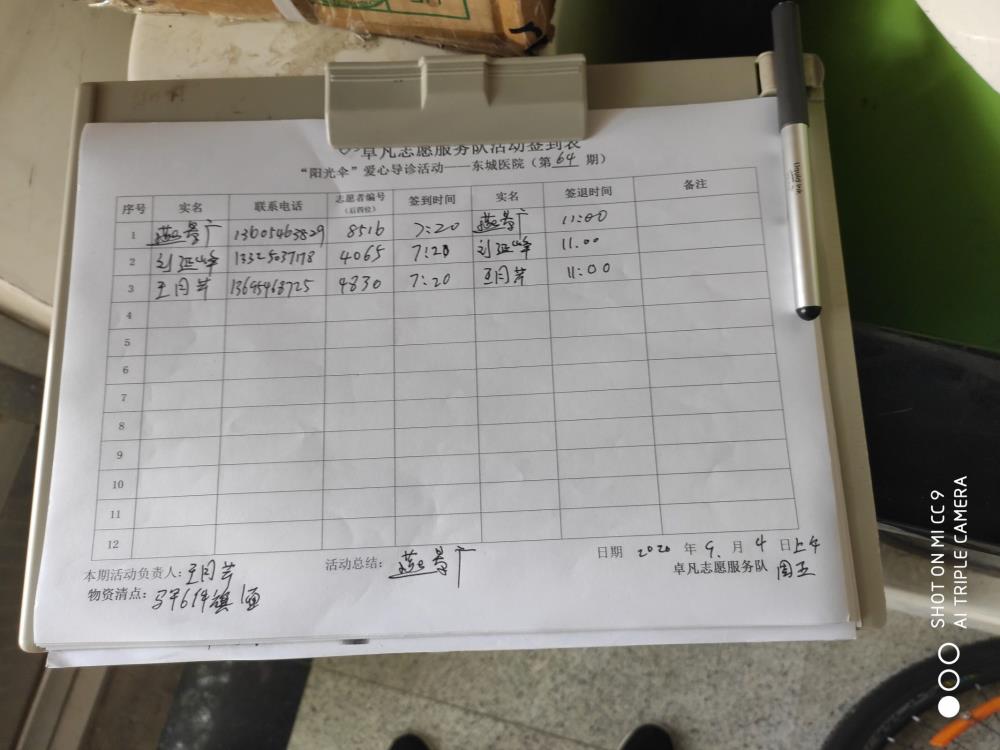 卓凡志愿服务队活动签到表
“阳光伞”爱心导诊活动——东城医院（第 64 期）
序号 实名 联系电话 志愿者编号（后四位） 签到时间 实名 签退时间 备注
1 燕景广 13605463829 8516 7:20 燕景广 11:00
2 刘延峰 13325037178 4065 7:20 刘延峰 11.00
3 王月芹 13695468725 4830 7:20 王月芹 11:00
4
5
6
7
8
9
10
11
12
本期活动负责人：王月芹 活动总结：燕景广 日期 2020 年 9. 月 4 日上午
物资清点：马甲6件旗1面 卓凡志愿服务队 周五
SHOT ON MI CC9
AI TRIPLE CAMERA